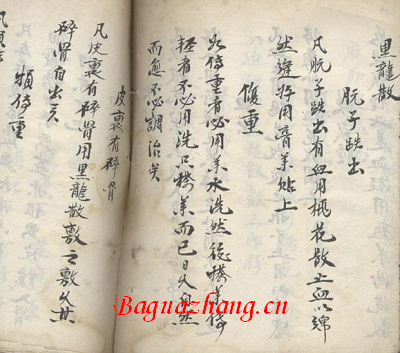 黑龍散
脘子跌出
凡脘子跌出有血用桃花散止血以綿
然縫好用膏藥貼上
傷重
如傷重者必用藥水洗然後搽藥傷
輕者不必用洗只搽藥而已日久自然
而愈不必調治矣
皮裏有碎骨
凡皮裏有碎骨用黑龍散敷之敷久其
碎骨自出矣
損傷重
Baguazhang.cn